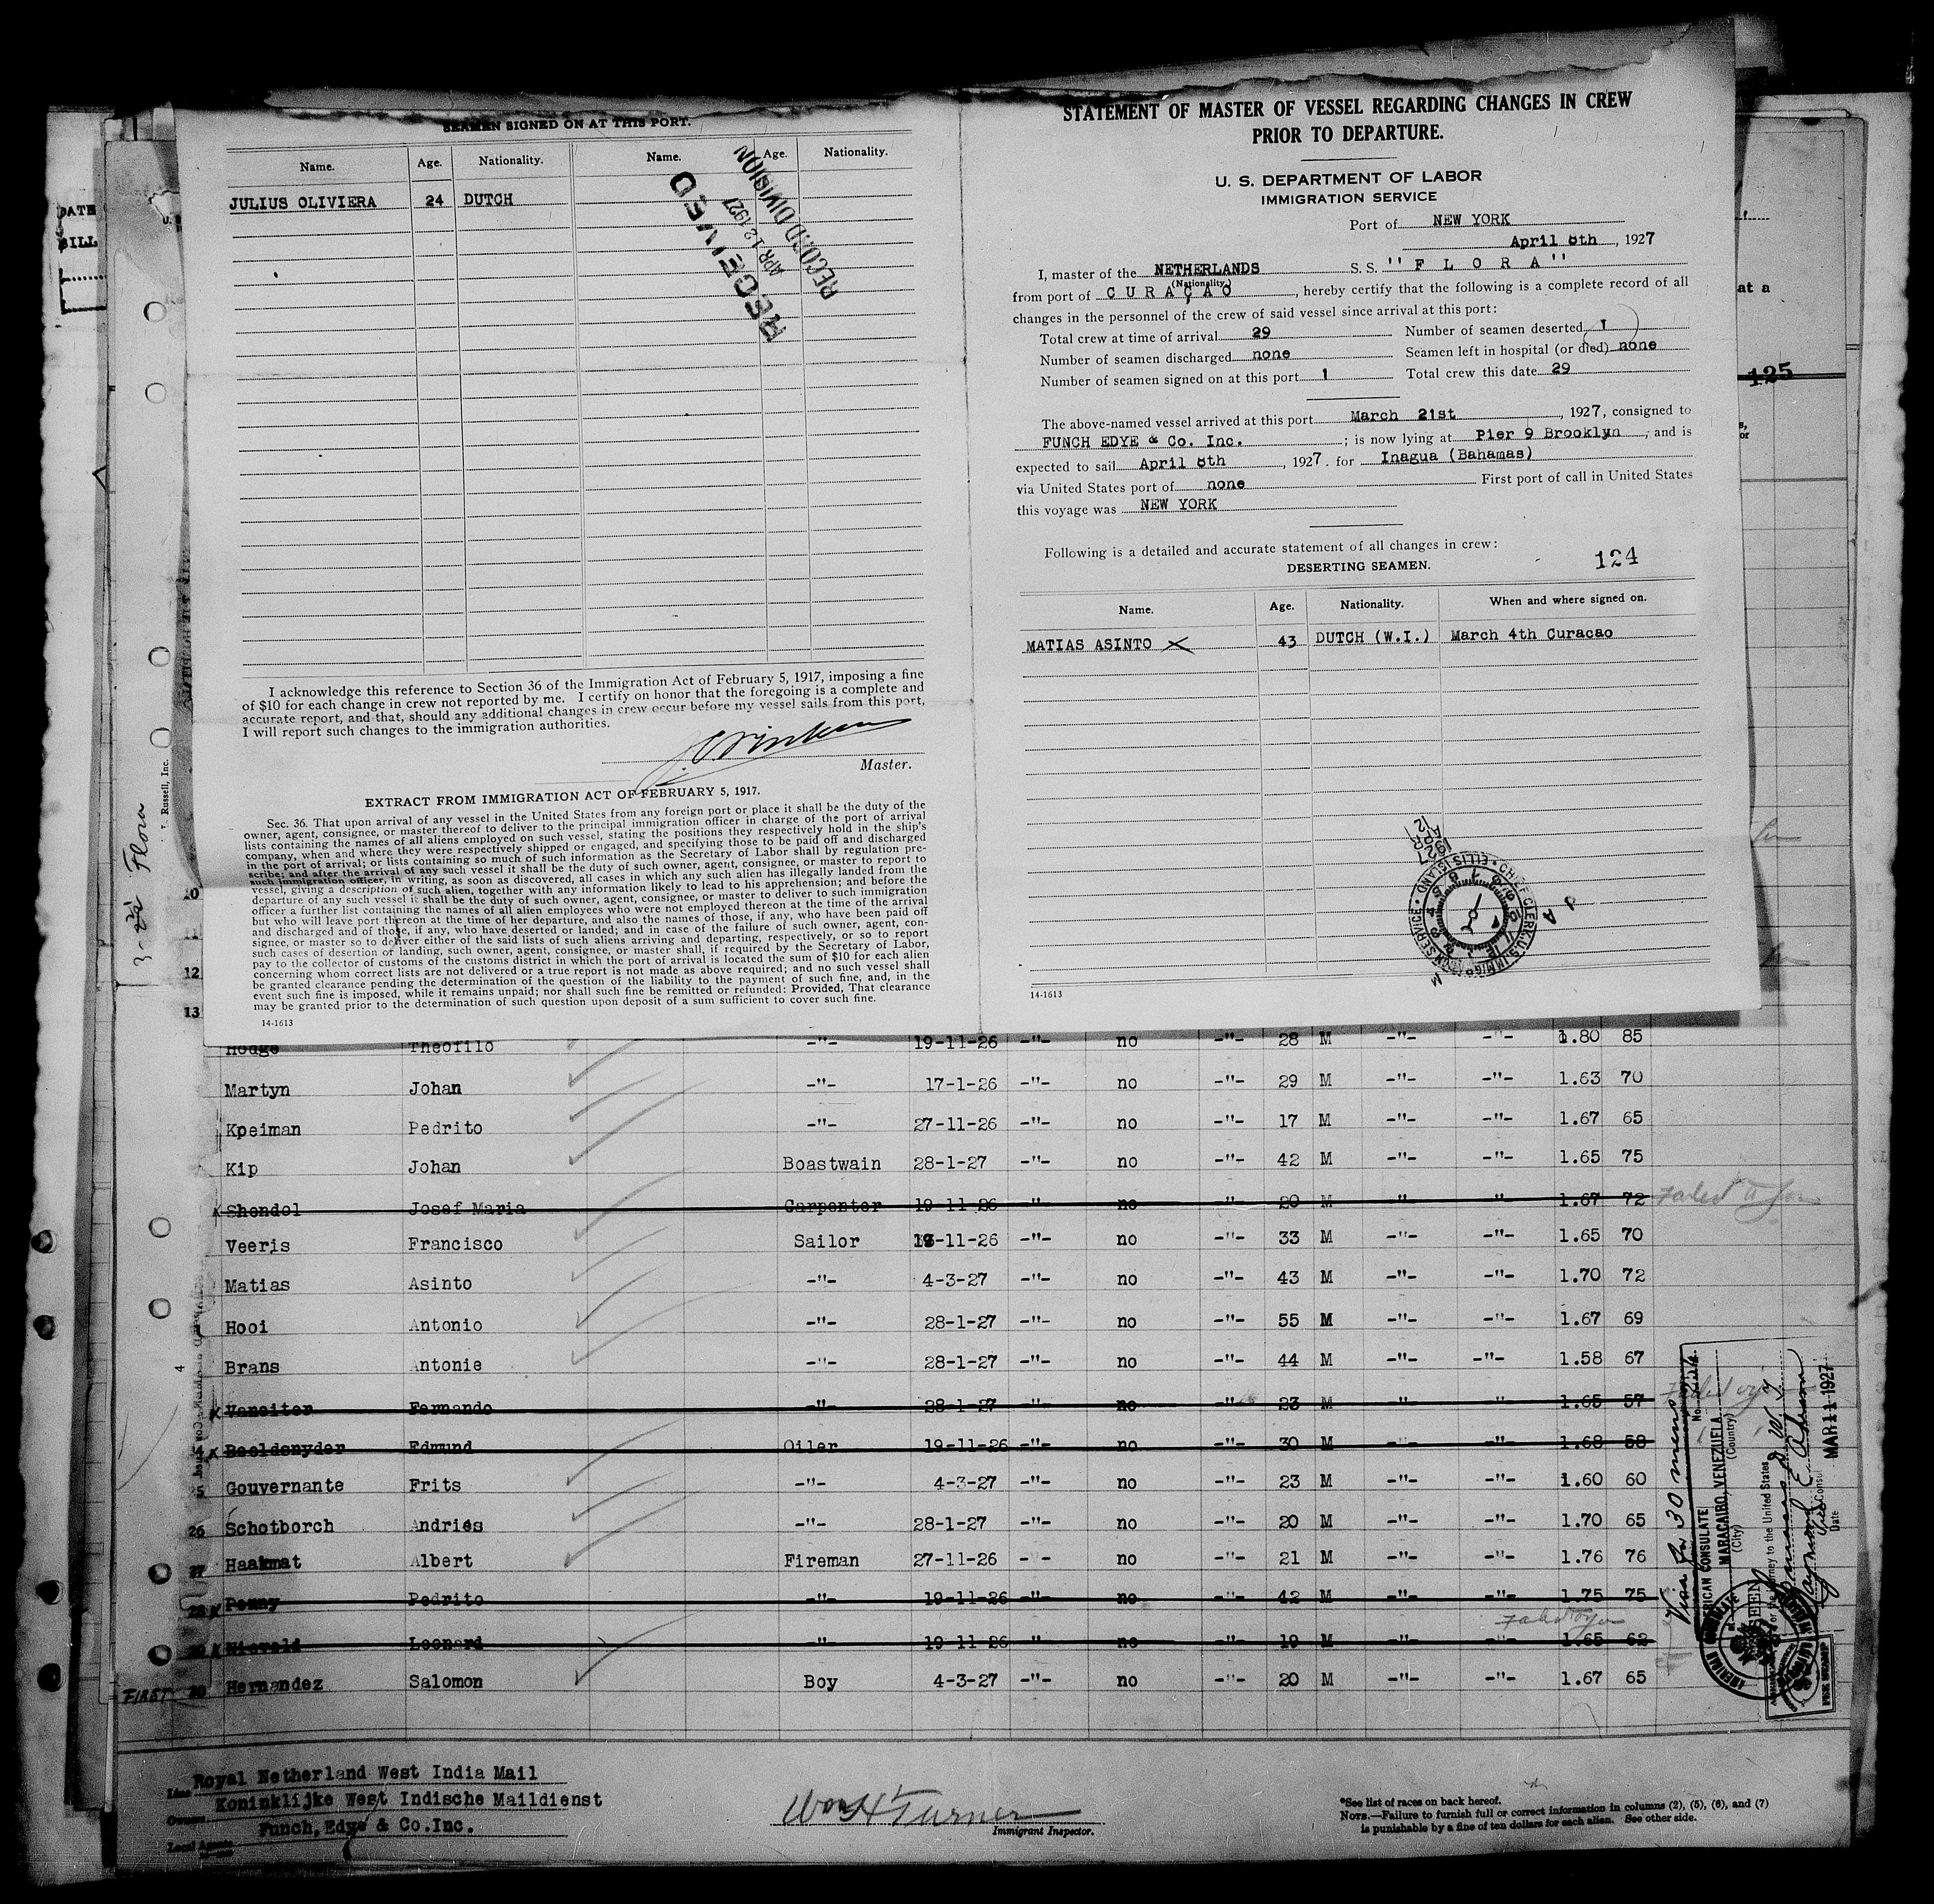 SEAMEN SIGNED ON AT THIS PORT.
Name. Age. Nationality. Name. Age. Nationality.
JULIUS OLIVIERA 24 DUTCH
RECEIVED
APR 12 1927
RECORD DIVISION
I acknowledge this reference to Section 36 of the Immigration Act of February 5, 1917, imposing a fine
of $10 for each change in crew not reported by me. I certify on honor that the foregoing is a complete and
accurate report, and that, should any additional changes in crew occur before my vessel sails from this port,
I will report such changes to the immigration authorities.
Master.
EXTRACT FROM IMMIGRATION ACT OF FEBRUARY 5, 1917.
Sec. 36. That upon arrival of any vessel in the United States from any foreign port or place it shall be the duty of the
owner, agent, consignee, or master thereof to deliver to the principal immigration officer in charge of the port of arrival
lists containing the names of all aliens employed on such vessel, stating the positions they respectively hold in the ship's
company, when and where they were respectively shipped or engaged, and specifying those to be paid off and discharged
in the port of arrival; or lists containing so much of such information as the Secretary of Labor shall by regulation pre-
scribe; and after the arrival of any such vessel it shall be the duty of such owner, agent, consignee, or master to report to
such immigration officer, in writing, as soon as discovered, all cases in which any such alien has illegally landed from the
vessel, giving a description of such alien, together with any information likely to lead to his apprehension; and before the
departure of any such vessel it shall be the duty of such owner, agent, consignee, or master to deliver to such immigration
officer a further list containing the names of all alien employees who were not employed thereon at the time of the arrival
but who will leave port thereon at the time of her departure, and also the names of those, if any, who have been paid off
and discharged and of those, if any, who have deserted or landed; and in case of the failure of such owner, agent, con-
signee, or master so to deliver either of the said lists of such aliens arriving and departing, respectively, or so to report
such cases of desertion or landing, such owner, agent, consignee, or master shall, if required by the Secretary of Labor,
pay to the collector of customs of the customs district in which the port of arrival is located the sum of $10 for each alien
concerning whom correct lists are not delivered or a true report is not made as above required; and no such vessel shall
be granted clearance pending the determination of the question of the liability to the payment of such fine, and, in the
event such fine is imposed, while it remains unpaid; nor shall such fine be remitted or refunded: Provided, That clearance
may be granted prior to the determination of such question upon deposit of a sum sufficient to cover such fine.
14-1613
STATEMENT OF MASTER OF VESSEL REGARDING CHANGES IN CREW
PRIOR TO DEPARTURE.
U. S. DEPARTMENT OF LABOR
IMMIGRATION SERVICE
Port of NEW YORK
April 8th, 1927
I, master of the NETHERLANDS S. S. "F L O R A"
(Nationality)
from port of C U R A Ç A O, hereby certify that the following is a complete record of all
changes in the personnel of the crew of said vessel since arrival at this port:
Total crew at time of arrival 29 Number of seamen deserted 1
Number of seamen discharged none Seamen left in hospital (or died) none
Number of seamen signed on at this port 1 Total crew this date 29
The above-named vessel arrived at this port March 21st, 1927, consigned to
FUNCH EDYE & Co. Inc. ; is now lying at Pier 9 Brooklyn, and is
expected to sail April 8th, 1927. for Inagua (Bahamas)
via United States port of none First port of call in United States
this voyage was NEW YORK
Following is a detailed and accurate statement of all changes in crew:
DESERTING SEAMEN. 124
Name. Age. Nationality. When and where signed on.
MATIAS ASINTO X 43 DUTCH (W.I.) March 4th Curacao
14-1613
DATE
BILL
at a
125
Russell, Inc.
Flora
10
11
12
13
Hodge Theofilo -"- 19-11-26 -"- no -"- 28 M -"- -"- 1.80 85
Martyn Johan -"- 17-1-26 -"- no -"- 29 M -"- -"- 1.63 70
Kpeiman Pedrito -"- 27-11-26 -"- no -"- 17 M -"- -"- 1.67 65
Kip Johan Boastwain 28-1-27 -"- no -"- 42 M -"- -"- 1.65 75
x Shondel Josef Maria Carpenter 19-11-26 -"- no -"- 20 M -"- -"- 1.67 72
Veeris Francisco Sailor -11-26 -"- no -"- 33 M -"- -"- 1.65 70
Matias Asinto -"- 4-3-27 -"- no -"- 43 M -"- -"- 1.70 72
Hooi Antonio -"- 28-1-27 -"- no -"- 55 M -"- -"- 1.67 69
Brans Antonie -"- 28-1-27 -"- no -"- 44 M -"- -"- 1.58 67
x Fernando -"- 28-1-27 -"- no -"- 23 M -"- -"- 1.65 57
x Beeldsnyder Edmund Oiler 19-11-26 -"- no -"- 30 M -"- -"- 1.68 58
Gouvernante Frits -"- 4-3-27 -"- no -"- 23 M -"- -"- 1.60 60
26 Schotborch Andries -"- 28-1-27 -"- no -"- 20 M -"- -"- 1.70 65
27 Haakmat Albert Fireman 27-11-26 -"- no -"- 21 M -"- -"- 1.76 76
x Penny Pedrito -"- 19-11-26 -"- no -"- 42 M -"- -"- 1.75 75
x Leonard -"- 19-11-26 -"- no -"- 19 M -"- -"- 1.65 62
FIRST 30 Hernandez Salomon Boy 4-3-27 -"- no -"- 20 M -"- -"- 1.67 65
AMERICAN CONSULATE
MARACAIBO, VENEZUELA
(City) (Country)
SEEN
For the journey to the United States
Date MAR 11 1927
Line Royal Netherland West India Mail
Owners Koninklijke West Indische Maildienst
Local Agents Funch, Edye & Co.Inc.
Wm H Turner
Immigrant Inspector.
*See list of races on back hereof.
NOTE.—Failure to furnish full or correct information in columns (2), (5), (6), and (7)
is punishable by a fine of ten dollars for each alien. See other side.